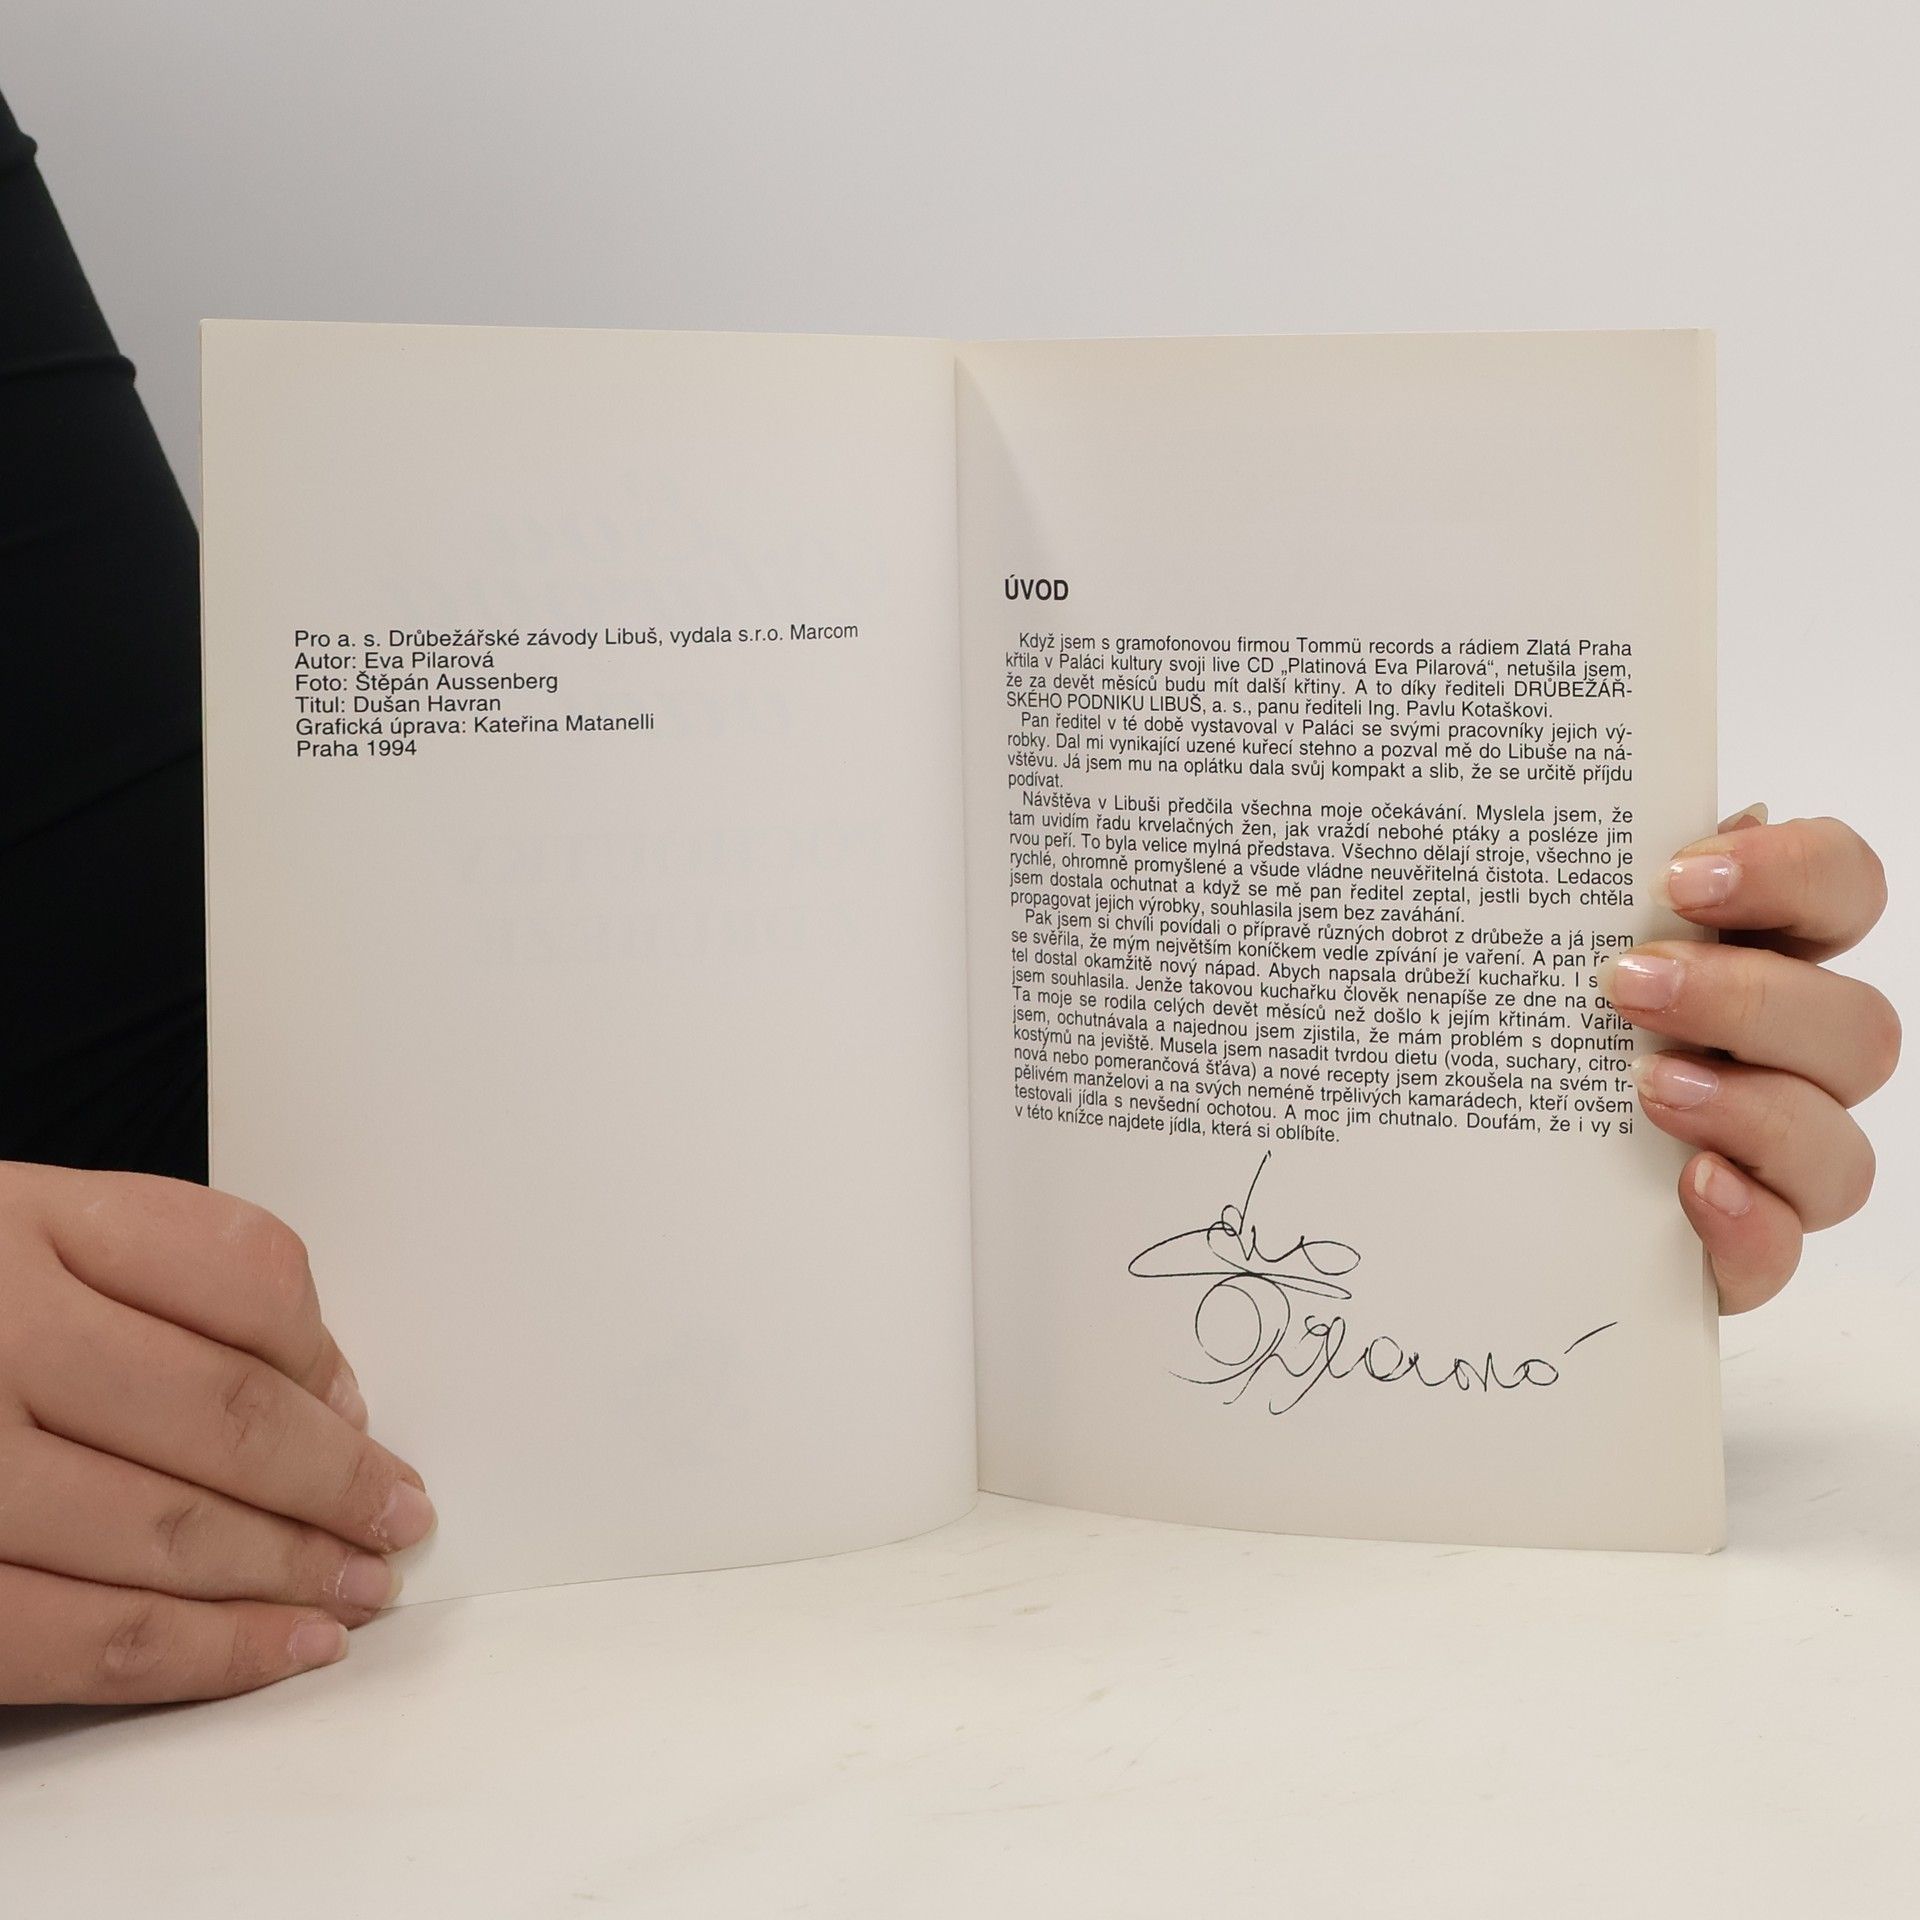 Pro a. s. Drůbežářské závody Libuš, vydala s.r.o. Marcom
Autor: Eva Pilarová
Foto: Štěpán Aussenberg
Titul: Dušan Havran
Grafická úprava: Kateřina Matanelli
Praha 1994
ÚVOD
Když jsem s gramofonovou firmou Tommü records a rádiem Zlatá Praha
křtila v Paláci kultury svoji live CD „Platinová Eva Pilarová“, netušila jsem,
že za devět měsíců budu mít další křtiny. A to díky řediteli DRŮBEŽÁŘ-
SKÉHO PODNIKU LIBUŠ, a. s., panu řediteli Ing. Pavlu Kotaškovi.
Pan ředitel v té době vystavoval v Paláci se svými pracovníky jejich vý-
robky. Dal mi vynikající uzené kuřecí stehno a pozval mě do Libuše na ná-
vštěvu. Já jsem mu na oplátku dala svůj kompakt a slib, že se určitě příjdu
podívat.
Návštěva v Libuši předčila všechna moje očekávání. Myslela jsem, že
tam uvidím řadu krvelačných žen, jak vraždí nebohé ptáky a posléze jim
rvou peří. To byla velice mylná představa. Všechno dělají stroje, všechno je
rychlé, ohromně promyšlené a všude vládne neuvěřitelná čistota. Ledacos
jsem dostala ochutnat a když se mě pan ředitel zeptal, jestli bych chtěla
propagovat jejich výrobky, souhlasila jsem bez zaváhání.
Pak jsem si chvíli povídali o přípravě různých dobrot z drůbeže a já jsem
se svěřila, že mým největším koníčkem vedle zpívání je vaření. A pan
tel dostal okamžitě nový nápad. Abych napsala drůbeží kuchařku. I s
jsem souhlasila. Jenže takovou kuchařku člověk nenapíše ze dne na
Ta moje se rodila celých devět měsíců než došlo k jejím křtinám. Vařila
jsem, ochutnávala a najednou jsem zjistila, že mám problém s dopnutím
kostýmů na jeviště. Musela jsem nasadit tvrdou dietu (voda, suchary, citro-
nová nebo pomerančová šťáva) a nové recepty jsem zkoušela na svém tr-
pělivém manželovi a na svých neméně trpělivých kamarádech, kteří ovšem
testovali jídla s nevšední ochotou. A moc jim chutnalo. Doufám, že i vy si
v této knížce najdete jídla, která si oblíbíte.
Eva
Pilarová